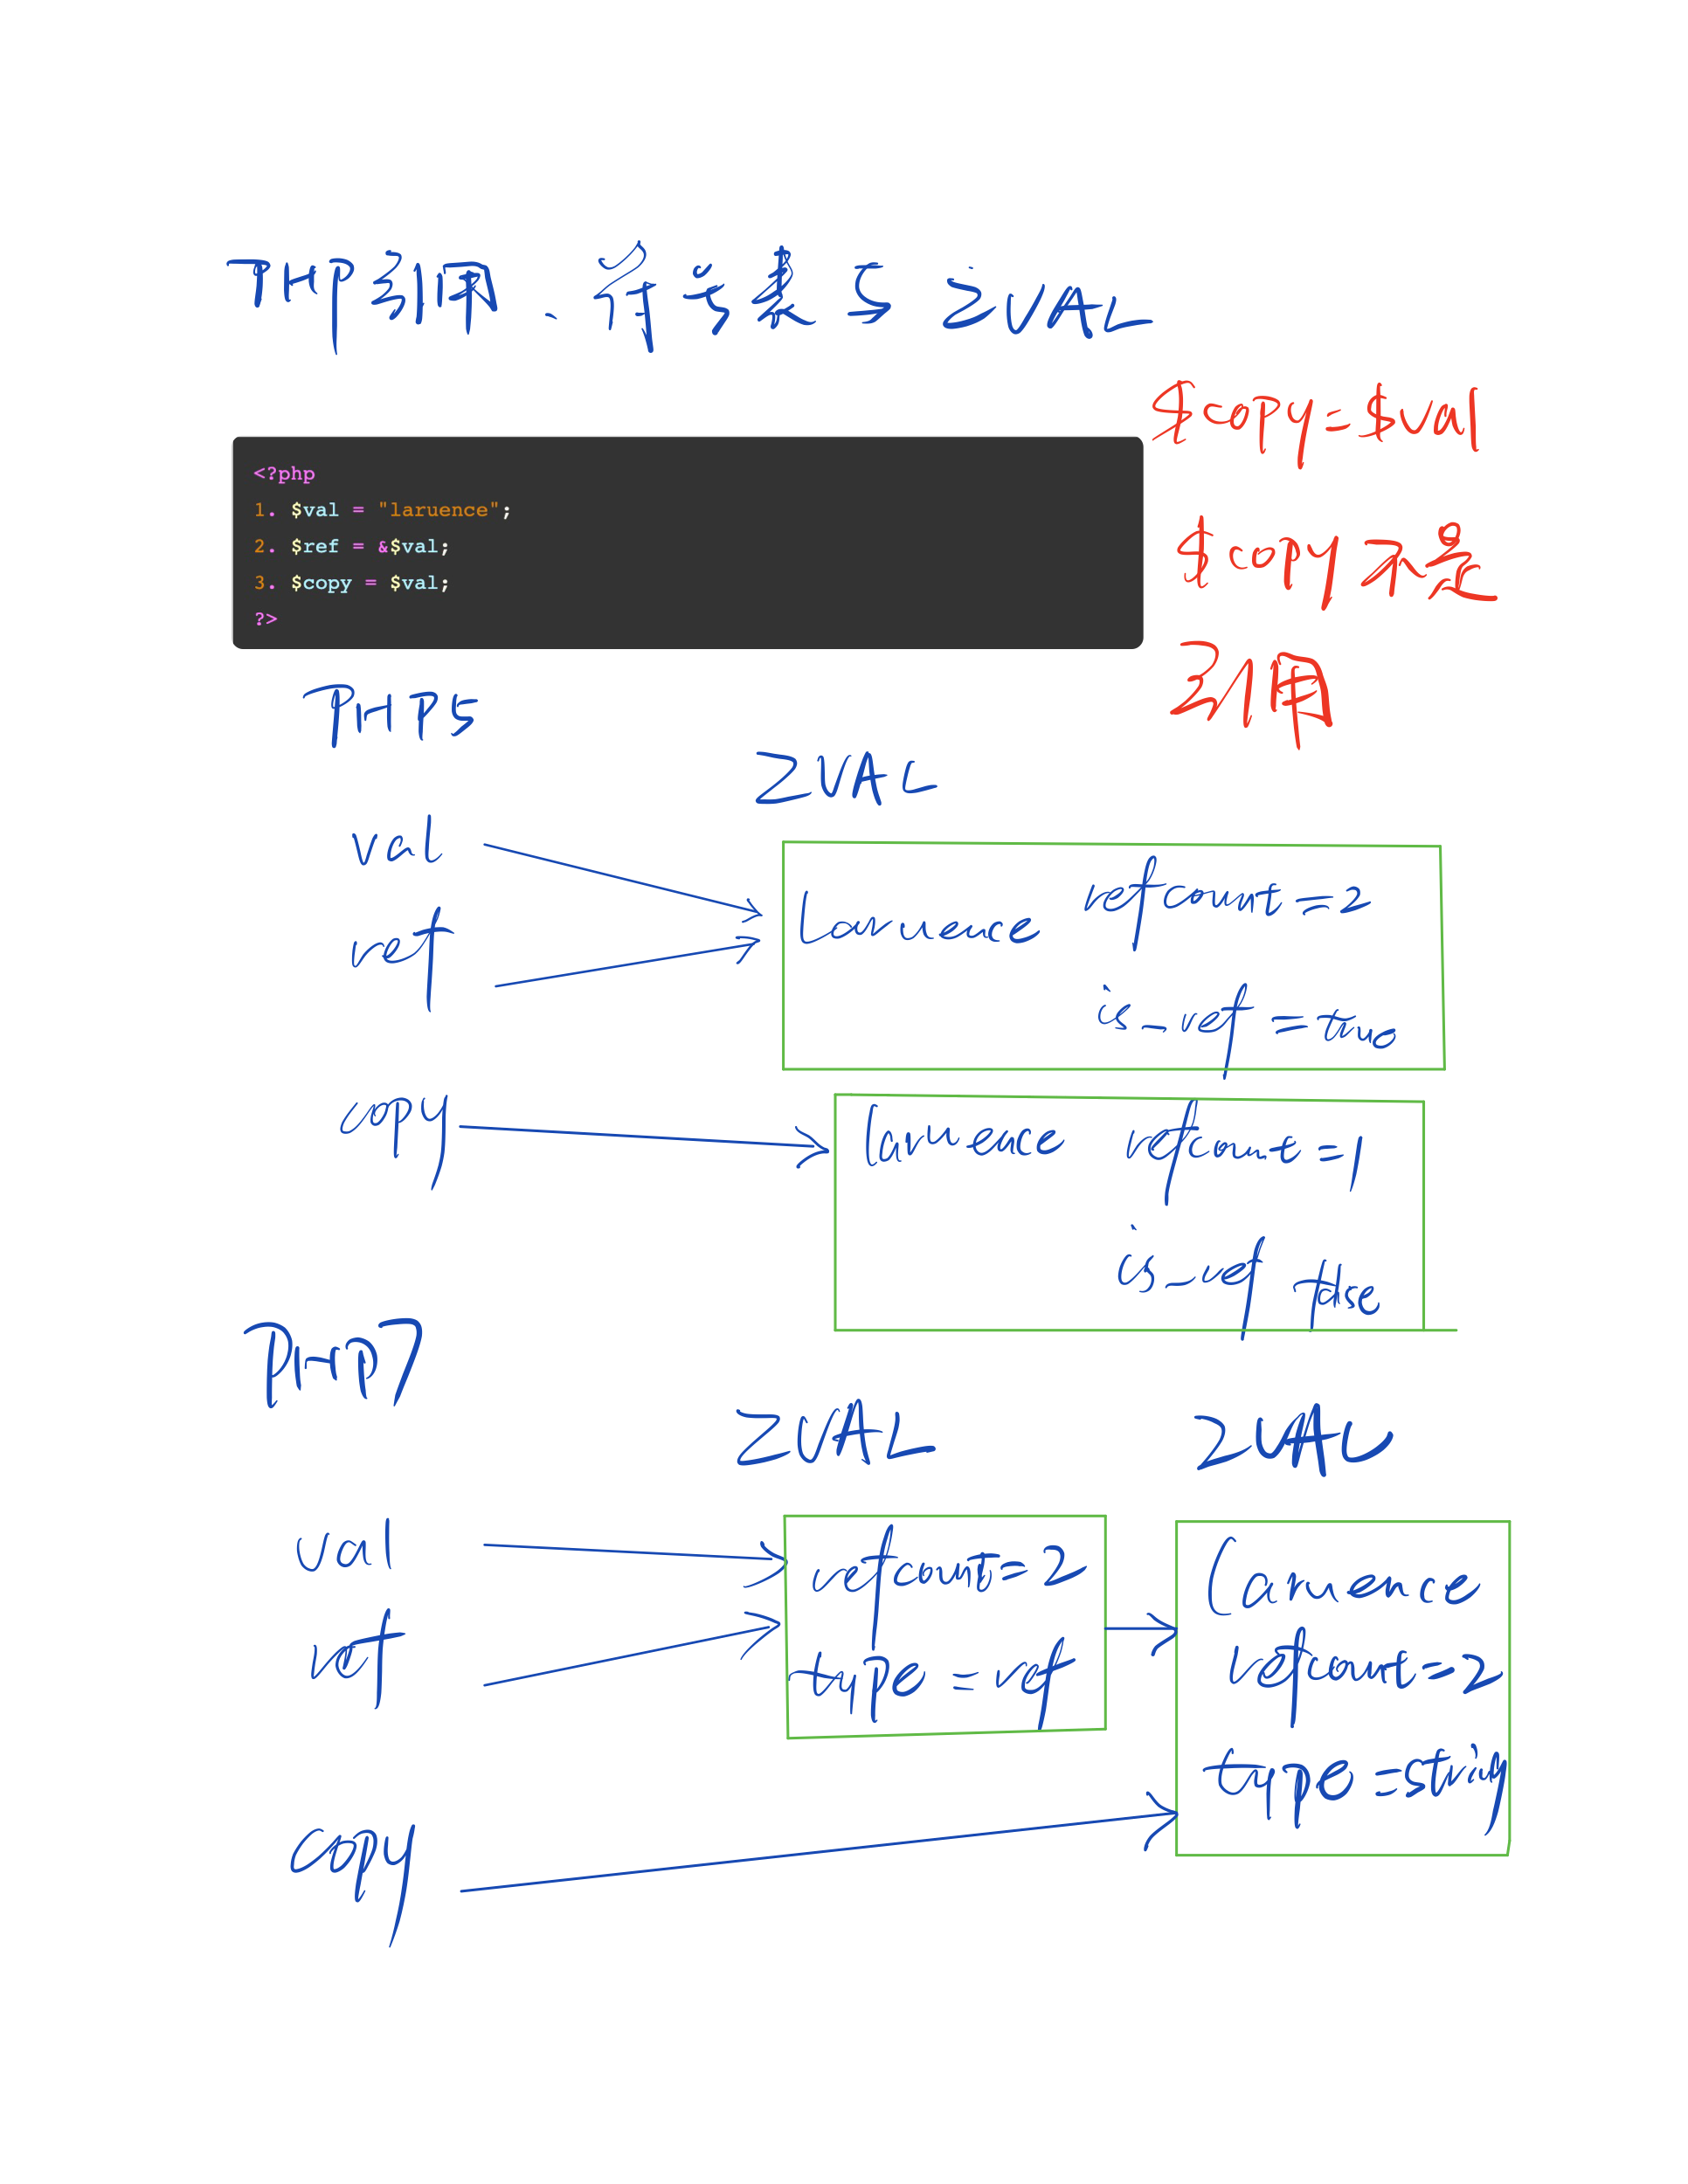 PHP引用、符号表与ZVAL
$copy=$val
$copy不是
引用
<?php
1. $val = "laruence";
2. $ref = &$val;
3. $copy = $val;
?>
PHP5
ZVAL
val
ref
laruence refcount=2
is_ref=true
copy
laruence refcount=1
is_ref false
PHP7
ZVAL ZVAL
val
ref
refcount=2
type=ref
laruence
refcount=2
type=string
copy